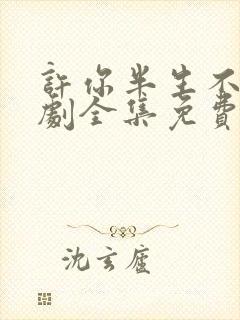 許你半生不
劇全集免費
沈玄廬